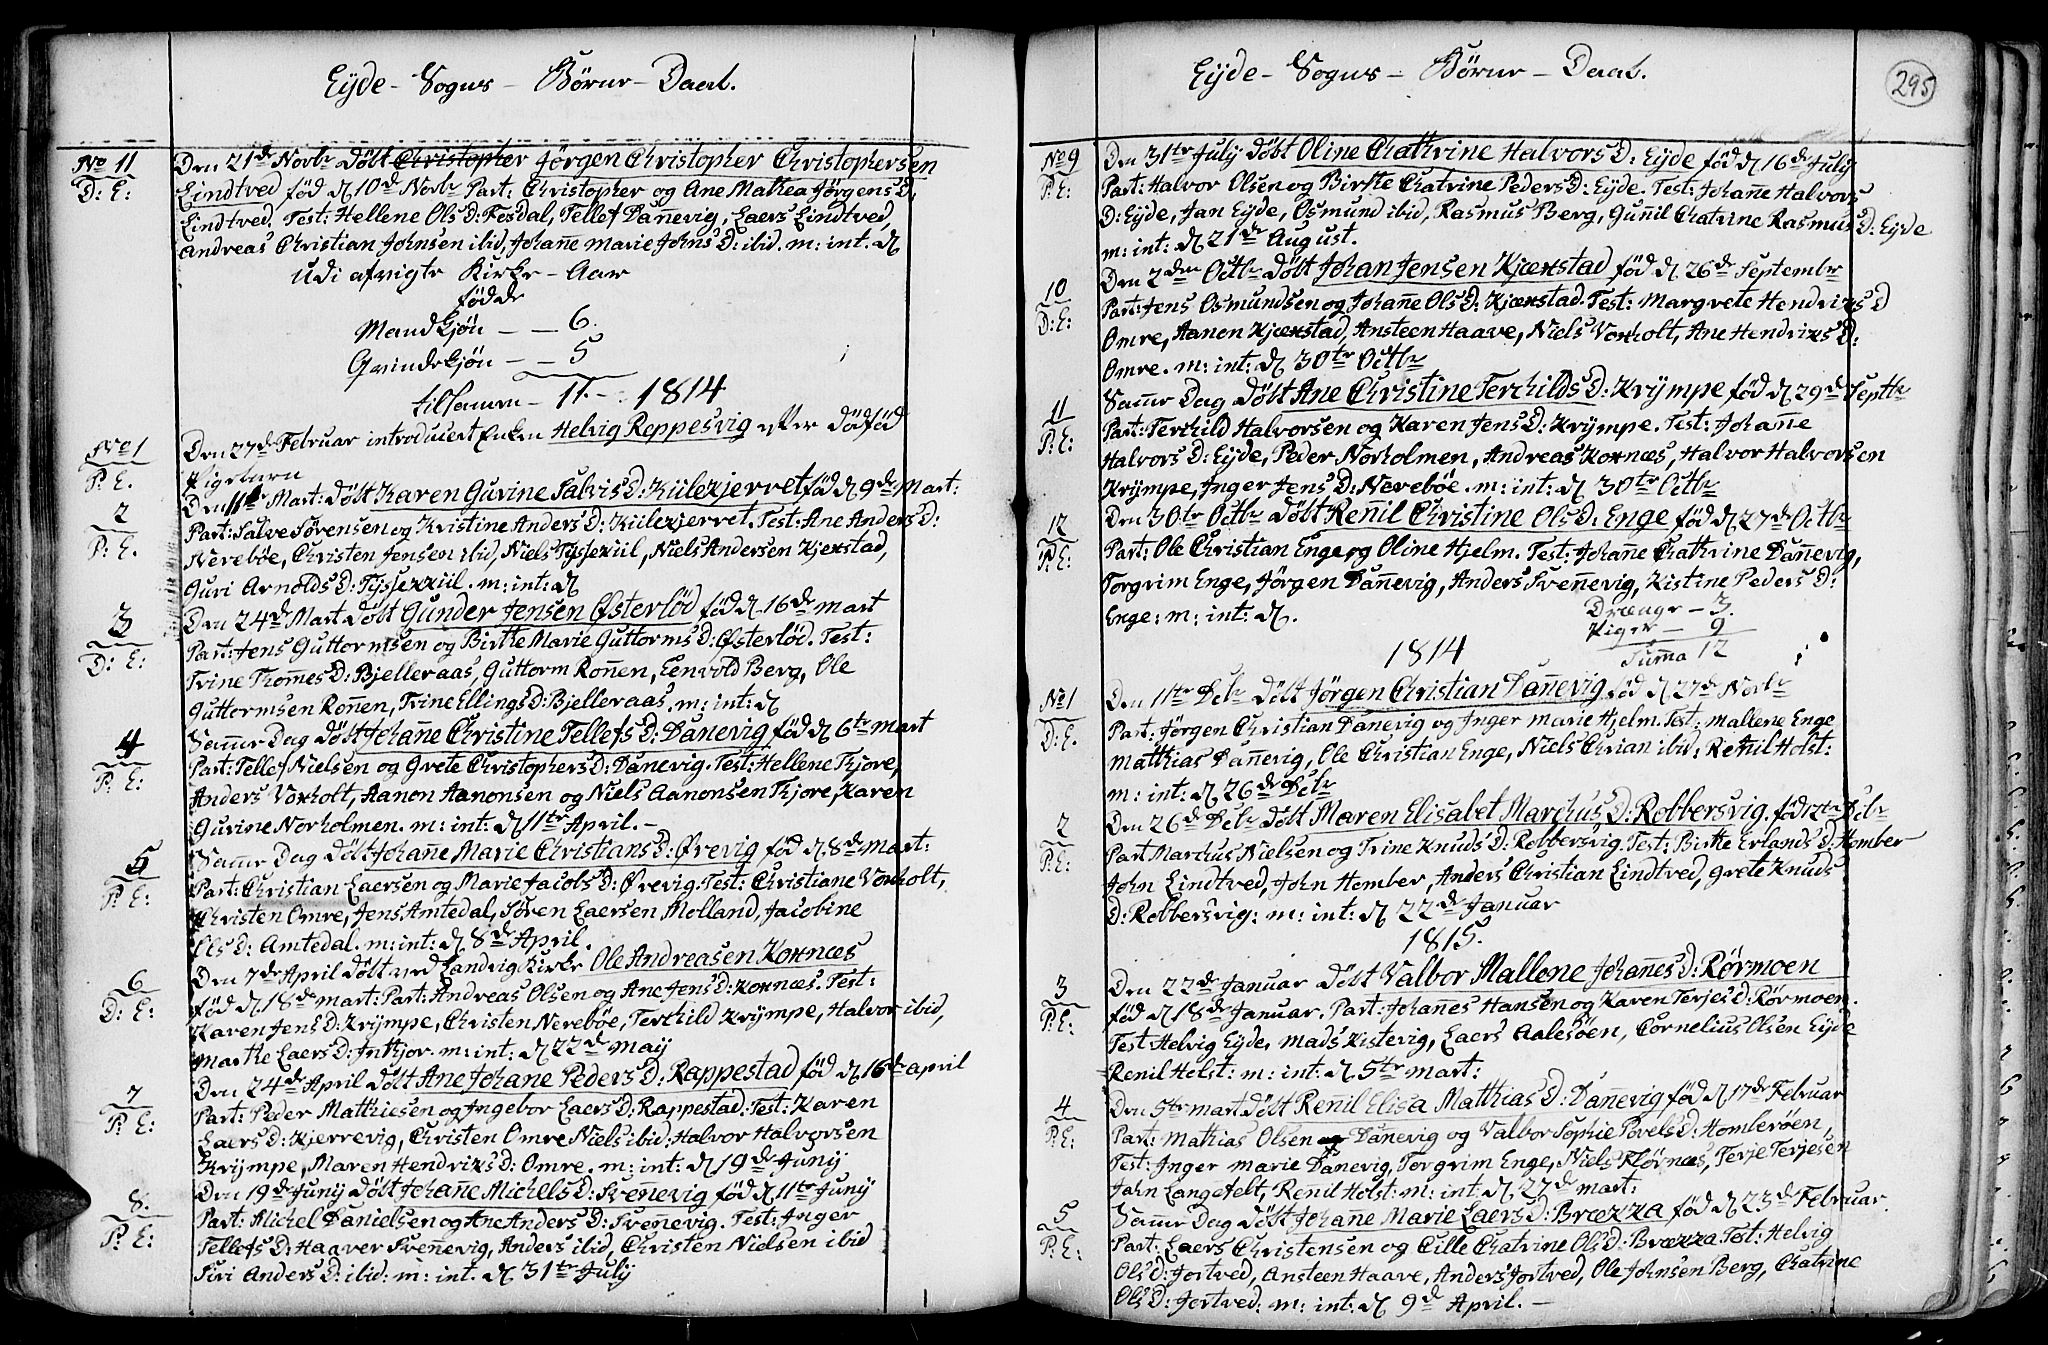 Eyde - Sogns - Börne - Daab.
No 11
D: E:
Den 21de Novbr döbt Christopher Jörgen Christopher Christophersen
Lindtved föd d 10de Novbr Part: Christopher og Ane Mathea Jörgens D:
Lindtved. Test: Hellene Ols D: Fesdal, Tellef Dannevig, Laers Lindtved,
Andreas Christian Johnsen ibid, Johanne Marie Johns D: ibid. m: int. d
udi afvigte Kirke - Aar
födde
Mandkjön - - 6.
Qvindekjön - - 5
tilsamen - 11. - : 1814
No 1
P: E.
Den 27de Februar introducert Enken Helvig Reppesvig efter dödföd
Pigebarn
2
P: E.
Den 11te Mart: döbt Karen Guvine Salvis D: Kiilekjerret föd d 9de Mart:
Part: Salve Sörensen og Kristine Anders D: Kiilekjerret. Test: Ane Anders D:
Nereböe, Christen Jensen ibid, Niels Tyssekiil, Niels Andersen Kjexstad,
Guri Arnolds D: Tyssekiil. m: int: d
3
D: E:
Den 24de Mart döbt Gunder Jensen Østerlöd föd d 16de mart
Part: Jens Guttormsen og Birthe Marie Guttorms D: Østerlöd. Test:
Trine Thomes D: Bjelleraas, Guttorm Ronnen, Eenvold Berg, Ole
Guttormsen Ronnen, Trine Ellings D: Bjelleraas. m: int: d
4
P: E:
Samme Dag döbt Johanne Christine Tellefs D: Danevig föd d 6te mart
Part: Tellef Nielsen og Grete Christophers D: Danevig. Test: Hellene Fjore,
Anders Voxholt, Aanon Aanonsen og Niels Aanonsen Fjore, Karen
Guvine Norholmen. m: int: d 11te April. -
5
P: E:
Samme Dag döbt Johanne Marie Christians D: Ørevig föd d 8de mart:
Part: Christian Laersen og Marie Jacobs D: Ørevig. Test: Christiane Voxholt,
Christen Omre, Jens Amtedal, Sören Laersen Molland, Jacobine
Ols D: Amtedal. m: int: d 8de April.
6
D: E:
Den 7de April döbt ved Landvig Kirke Ole Andreasen Koxnæs
föd d 18de mart: Part: Andreas Olsen og Ane Jens D: Koxnæs. Test:
Karen Jens D: Krympe, Christen Nereböe, Terchild Krympe, Halvor ibid,
Marthe Laers D: Inthjor. m: int: d 22de May
7
P: E:
Den 24de April döbt Ane Johane Peders D: Rappestad föd d 16de april
Part: Peder Matthiesen og Ingebor Laers D: Rappestad. Test: Karen
Laers D: Kjerrevig, Christen Omre Niels ibid: Halvor Halvorsen
Krympe, Maren Hendrixs D: Omre. m: int: d 19de Juny
8.
P: E:
Den 19de Juny döbt Johanne Michels D: Svennevig föd d 11te Juny
Part: Michel Danielsen og Ane Anders D: Svennevig. Test: Inger
Tellefs D: Haaver Svennevig, Anders ibid, Christen Nielsen ibid
Siri Anders D: ibid: m: int. d 31te July
295
Eyde - Sogns - Börne - Daab.
No 9
P: E:
Den 31te July döbt Oline Chathrine Halvors D: Eyde föd d 16de July
Part: Halvor Olsen og Birthe Chatrine Peders D: Eyde. Test: Johanne Halvors
D: Eyde, Jan Eyde, Osmund ibid, Rasmus Berg, Gunil Chatrine Rasmus D: Eyde
m: int: d 21de August.
10
D: E:
Den 2den Octbr döbt Johan Jensen Kjexstad föd d 26de Septembr
Part: Jens Osmundsen og Johanne Ols D: Kjexstad. Test: Margrete Hendrixs D
Omre, Aanon Kjexstad, Ansteen Haave, Niels Voxholt, Ane Hendrixs D:
Omre. m: int: d 30te Octbr
11
P: E:
Samme Dag döbt Ane Christine Terchilds D: Krympe föd d 29de Septbr
Part: Terchild Halvorsen og Karen Jens D: Krympe. Test: Johanne
Halvors D: Eyde, Peder Norholmen, Andreas Koxnæs, Halvor Halvorsen
Krympe, Inger Jens D: Nereböe. m: int: d 30te Octbr
12
P: E:
Den 30te Octbr döbt Rennil Christine Ols D: Enge föd d 27de Octbr
Part: Ole Christian Enge og Oline Hjelm. Test: Johanne Chathrine Dannevig,
Torgrim Enge, Jörgen Dannevig, Anders Svennevig, Kistine Peders D:
Enge: m: int: d.
Drenge - 3.
Piger - 9
Summa 12
1814
No 1
D: E.
Den 11te Debr döbt Jörgen Christian Dannevig föd d 27de Novbr
Part: Jörgen Christian Danevig og Inger Marie Hjelm. Test: Mallene Enge
Matthias Dannevig, Ole Christian Enge, Niels Chrian ibid, Rennil Holst:
m: int: d 26de Debr
2
P: E:
Den 26de Debr döbt Maren Elisabet Marchus D: Robbersvig, föd 12te Debr
Part Marchus Nielsen og Trine Knuds D: Robbersvig. Test: Birthe Erlands D: Homber
John Lindtved, John Homber, Anders Christian Lindtved, Grete Knuds
D: Robbersvig: m: int: d 22de Januar
1815.
3
P: E:
Den 22de Januar döbt Valbor Mallene Johanes D: Rörmoen
föd d 18de Januar. Part: Johannes Hansen og Karen Terjes D: Rörmoen.
Test: Helvig Eyde, Mads Kistevig, Laers Aalesöen, Cornelius Olsen Eyde
Renil Holst: m: int: d 5te mart:
4
P: E:
Den 5te mart döbt Renil Elisa Matthias D: Dannevig föd d 17de Februar
Part: Mathias Olsen Danevig og Valbor Sophie Povels D: Homberöen,
Test: Inger Marie Danevig, Torgrim Enge, Niels Flörnæs, Terje Terjesen
John Langefelt, Rennil Holst: m: int: d 27de mart:
5
P: E:
Samme Dag döbt Johanne Marie Laers D: Brekka föd d 23de Februar.
Part: Laers Christensen og Cille Chatrine Ols D: Brekka. Test: Helvig
Ols D: Jortved, Ansteen Haave, Anders Jortved, Ole Johnsen Berg, Chatrine
Ols D: Jortved: m: int: d 9de April. -